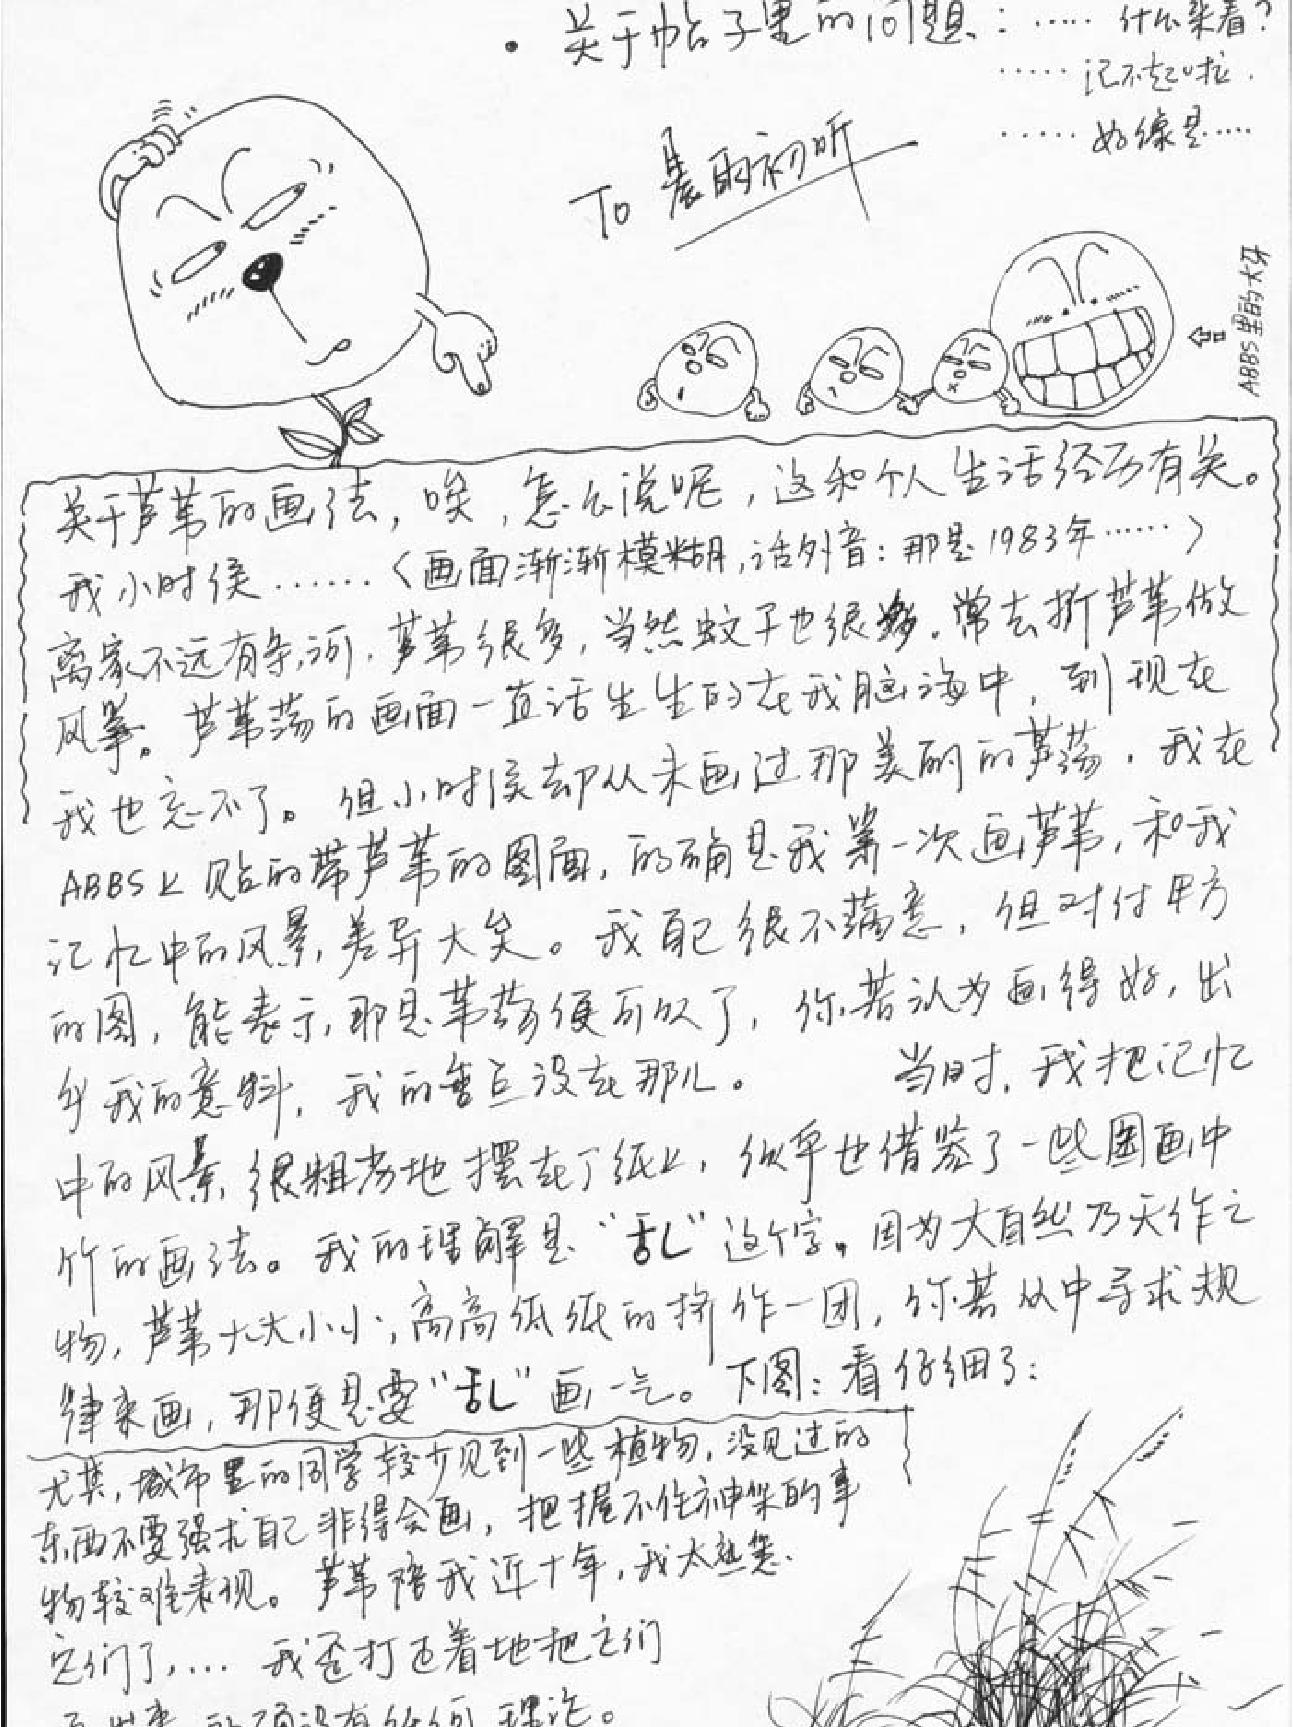 · 关于帖子里的问题：…… 什么来着？
…… 记不起啦.
…… 好像是……
To 晨雨初听
ABBS里的大牙
关于芦苇的画法，唉，怎么说呢，这和个人生活经历有关。
我小时侯……〈画面渐渐模糊，话外音：那是1983年……〉
离家不远有条河，芦苇很多，当然蚊子也很多。常去折芦苇做
风筝。芦苇荡的画面一直活生生的在我脑海中，到现在
我也忘不了。但小时侯却从未画过那美丽的芦荡，我在
ABBS上贴的带芦苇的图画，的确是我第一次画芦苇，和我
记忆中的风景，差异大矣。我自己很不满意，但对付甲方
的图，能表示，那是苇荡便可以了，你若认为画得好，出
乎我的意料，我的重点没在那儿。 当时，我把记忆
中的风景，很粗劣地摆在了纸上，似乎也借鉴了一些国画中
竹的画法。我的理解是“乱”这个字。因为大自然乃天作之
物，芦苇大大小小，高高低低的挤作一团，你若从中寻求规
律来画，那便是要“乱”画一气。下图：看仔细了：
尤其，城市里的同学较少见到一些植物，没见过的
东西不要强求自己非得会画，把握不住神架的事
物较难表现。芦苇陪我近十年，我太熟悉
它们了，… 我歪打正着地把它们